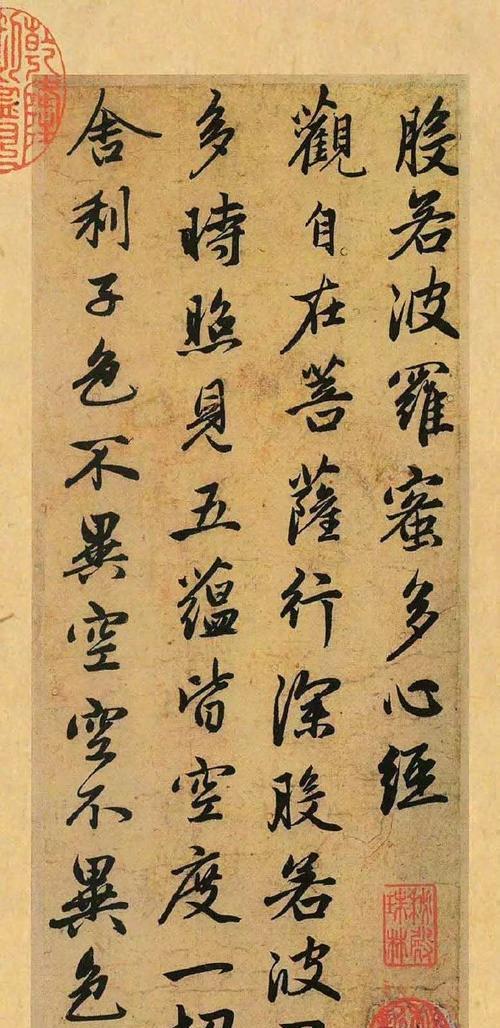 般若波羅蜜多心經
觀自在菩薩行深般若波
多時照見五蘊皆空度一
舍利子色不異空空不異色
秘殿珠林